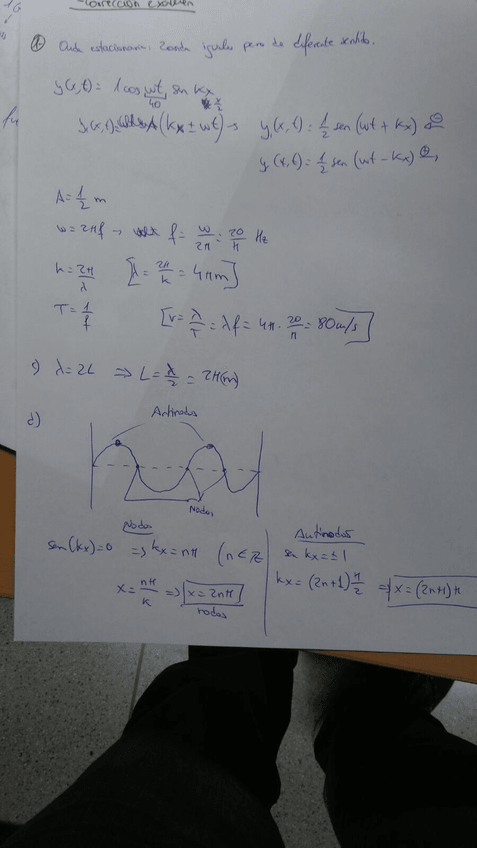 Corrección examen
1. Onda estacionaria: 2 ondas iguales pero de diferente sentido.
y(x,t) = 1 cos ωt sen kx
40
x/2
y(x,t) = A (kx ± ωt) → y(x,t) = 1/2 sen (ωt + kx)
y(x,t) = 1/2 sen (ωt - kx)
A = 1/2 m
ω = 2πf → f = ω/2π = 20/π Hz
k = 2π/λ [λ = 2π/k = 4π m]
T = 1/f [v = λ/T = λf = 4π · 20/π = 80 m/s]
c) λ = 2L ⇒ L = λ/2 = 2π(m)
d)
Antinodos
Nodos
Nodos
sen(kx) = 0 ⇒ kx = nπ (n ∈ ℤ
x = nπ/k ⇒ x = 2nπ
nodos
Antinodos
sen kx = ±1
kx = (2n+1) π/2 ⇒ x = (2n+1) π